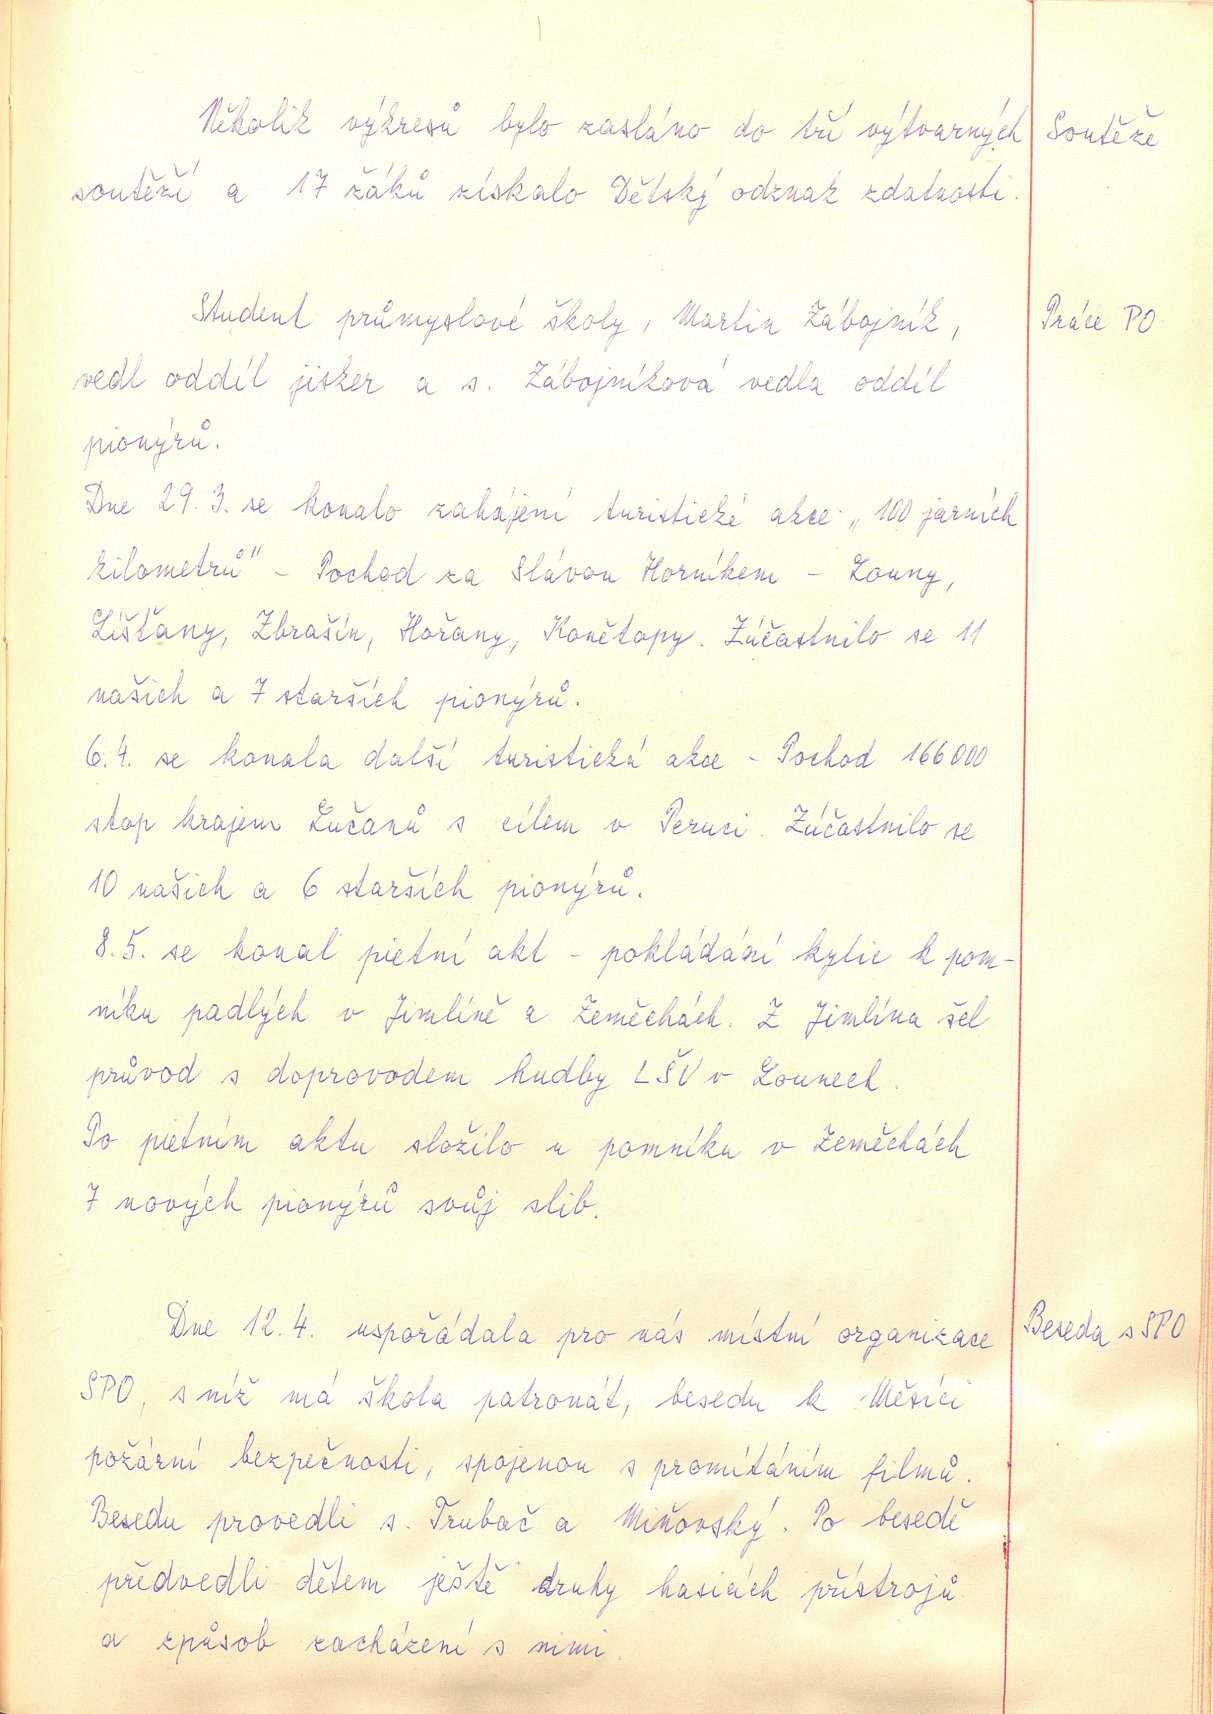 Několik výkresů bylo zasláno do tří výtvarných
Soutěže
soutěží a 17 žáků získalo Dětský odznak zdatnosti.
Student průmyslové školy, Martin Zábojník,
Práce PO
vedl oddíl jisker a s. Zábojníková vedla oddíl
pionýrů.
Dne 29. 3. se konalo zahájení turistické akce „100 jarních
kilometrů" – Pochod za Slávou Horníkem – Louny,
Líšťany, Zbrašín, Hořany, Konětopy. Zúčastnilo se 11
našich a 7 starších pionýrů.
6. 4. se konala další turistická akce – Pochod 166 000
stop krajem Lučanů s cílem v Peruci. Zúčastnilo se
10 našich a 6 starších pionýrů.
8. 5. se konal pietní akt – pokládání kytic k pom-
níku padlých v Jimlíně a Zeměchách. Z Jimlína šel
průvod s doprovodem hudby LŠU v Lounech.
Po pietním aktu složilo u pomníku v Zeměchách
7 nových pionýrů svůj slib.
Dne 12. 4. uspořádala pro nás místní organizace
Beseda s SPO
SPO, s níž má škola patronát, besedu k Měsíci
požární bezpečnosti, spojenou s promítáním filmů.
Besedu provedli s. Trubač a Miňovský. Po besedě
předvedli dětem ještě druhy hasicích přístrojů
a způsob zacházení s nimi.